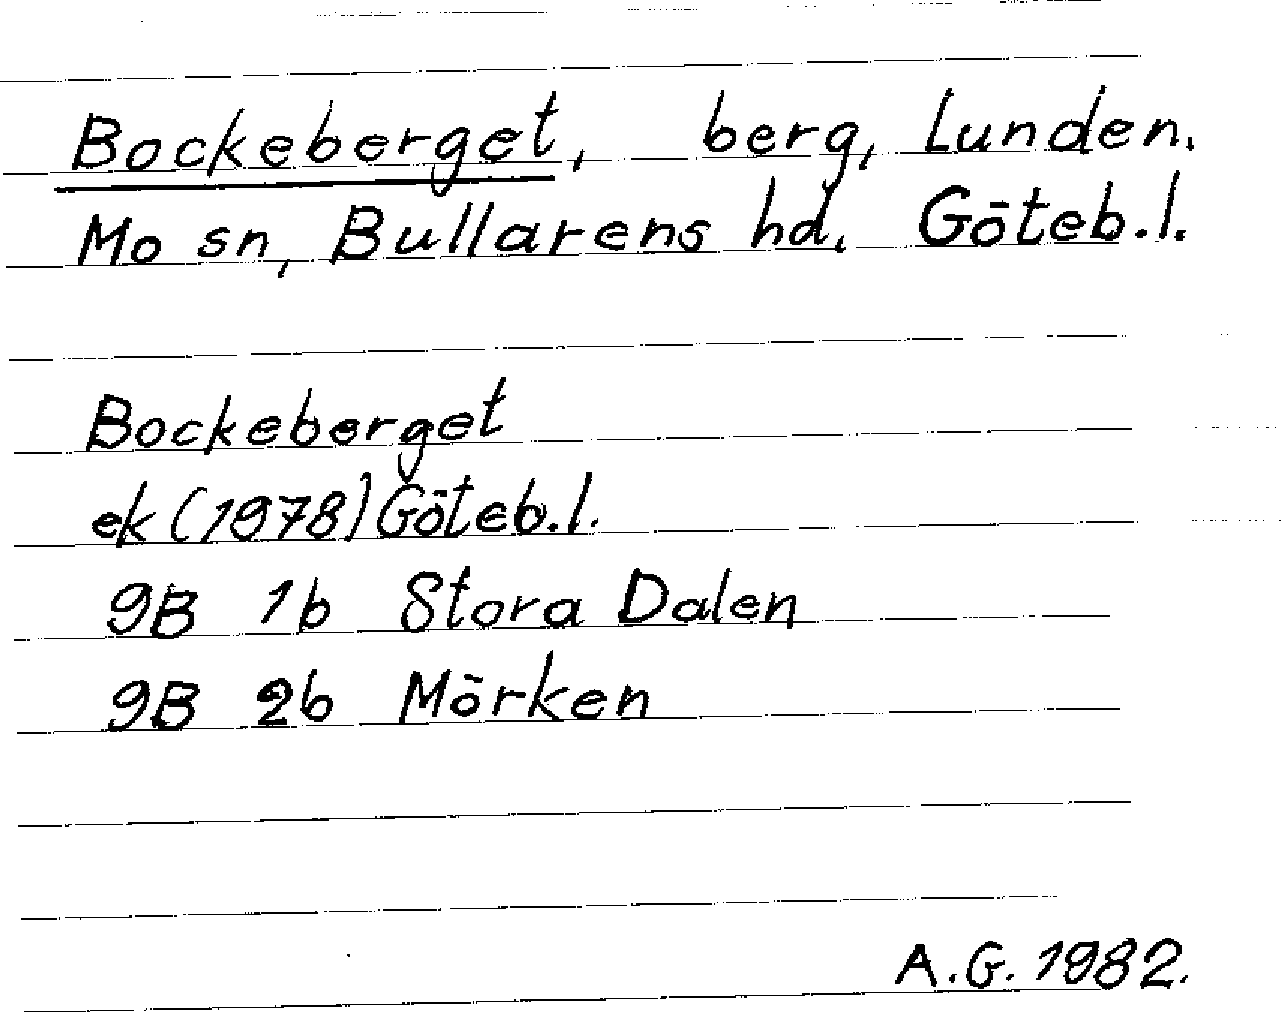 Bockeberget, berg, Lunden.
Mo sn, Bullarens hd. Göteb.l.
Bockeberget
ek (1978) Göteb.l.
9B 1b Stora Dalen
9B 2b Mörken
A.G. 1982.